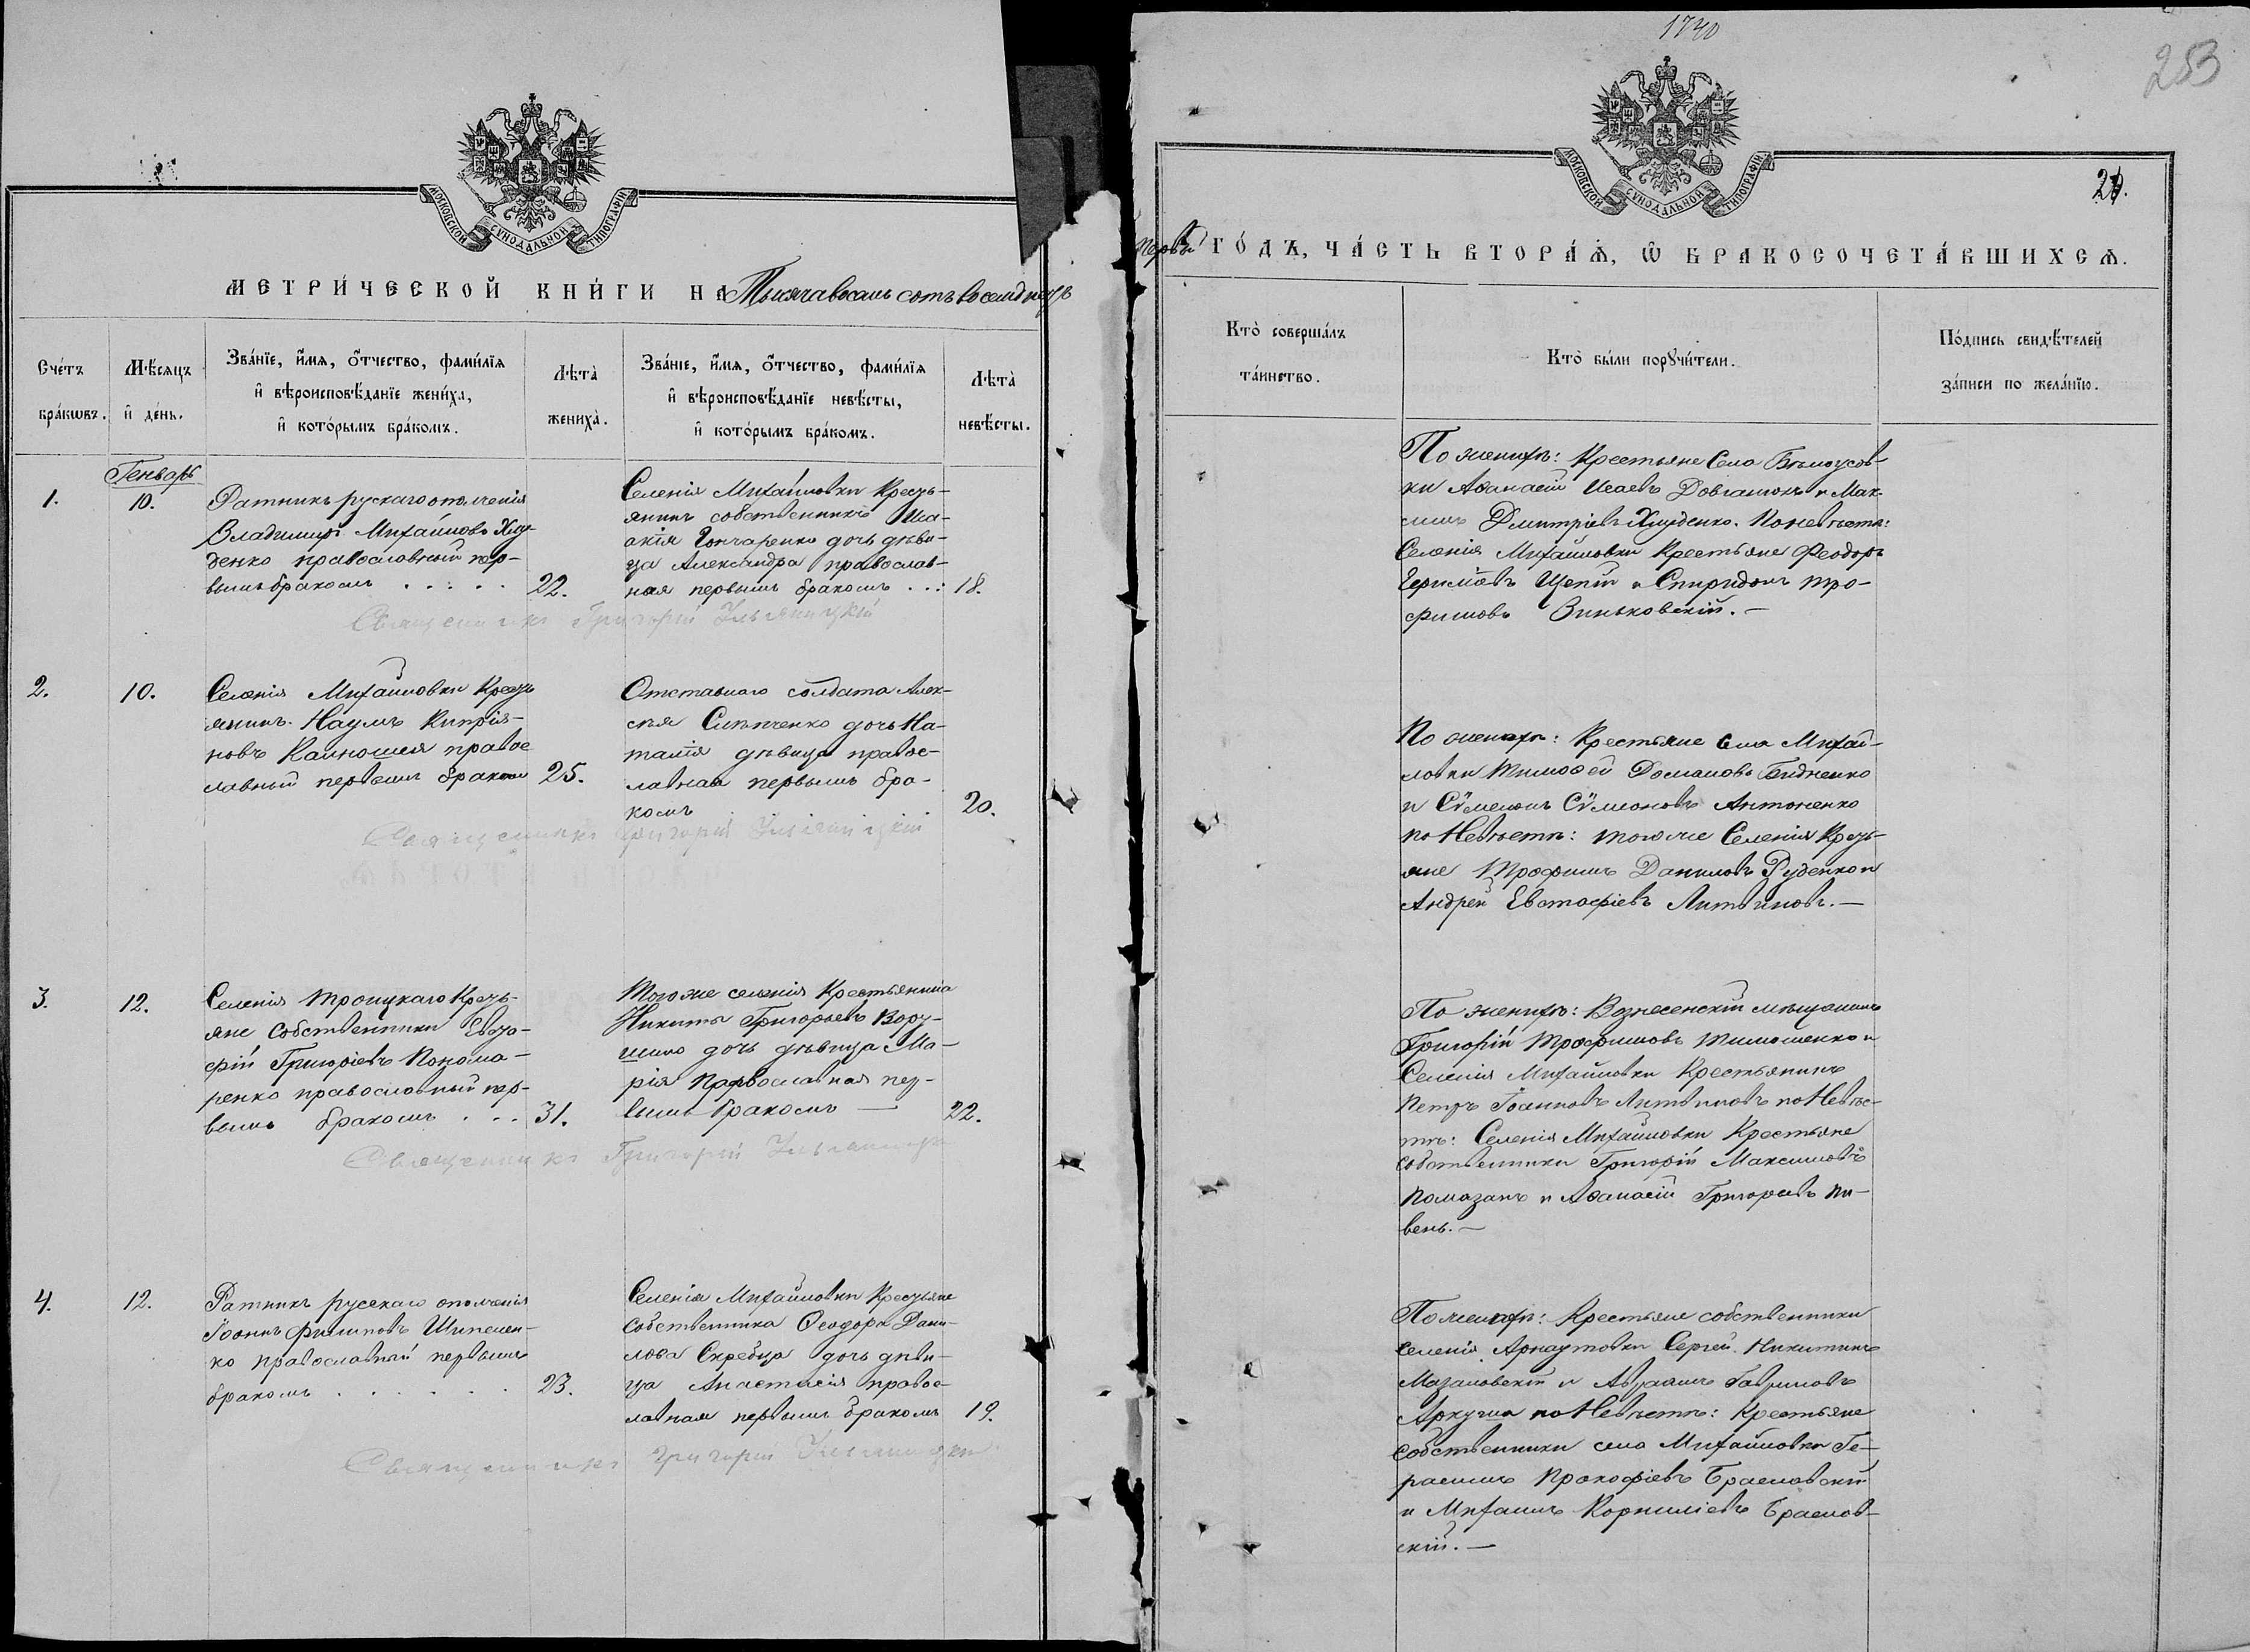 МОСКОВСКОЙ СѴНОДАЛЬНОЙ ТИПОГРАФІИ
МЕТРИ́ЧЕСКОЙ КНИ́ГИ НА Тысяча восемь сотъ восемдесятъ
Сче́тъ бра́кѡвъ.
Мѣ́сяцъ и҆ де́нь.
Зва́нїе, и҆́мя, ѻ҆́тчество, фами́лїя
и҆ вѣроисповѣ́данїе жениха̀,
и҆ кото́рымъ бра́комъ.
Лѣта̀ жениха̀.
Зва́нїе, и҆́мя, ѻ҆́тчество, фами́лїя
и҆ вѣроисповѣ́данїе невѣ́сты,
и҆ кото́рымъ бра́комъ.
Лѣта̀ невѣ́сты.
Генварь
1.
10.
Ратникъ рускаго ополченія
Владимиръ Михайловъ Хлу-
денко православный пер-
вымъ бракомъ . . . . .
22.
Селенія Михайловки Кресть-
янина собственника
Гончаренко дочь дѣви-
ца Александра православ-
ная первымъ бракомъ . . :
18.
Священникъ Григорій
2.
10.
Селенія Михайловки Кресть
янинъ Наумъ Кипрія-
новъ правос
лавный первымъ бракомъ
25.
Отставнаго солдата Алек-
сѣя дочь На-
талія дѣвица правос-
лавная первымъ бра-
комъ
20.
Священникъ Григорій
3.
12.
Селенія Троицкаго Кресть-
яне собственники
Григоріевъ Понома-
ренко православный пер-
вымъ бракомъ . . .
31.
Того же селенія Крестьянина
Никиты Григорьева
дочь дѣвица Ма-
рія Православная пер-
вымъ бракомъ —
22.
Священникъ Григорій
4.
12.
Ратникъ русскаго ополченія
Іоаннъ Филиповъ Шипелен-
ко православный первымъ
бракомъ . . . . . .
23.
Селенія Михайловки Крестьяне
Собственника Ѳеодора Дани-
лова Скребца дочь дѣви-
ца Анастасія правос-
лавная первымъ бракомъ
19.
Священникъ Григорій
1740
253
МОСКОВСКОЙ СѴНОДАЛЬНОЙ ТИПОГРАФІИ
первый ГО́ДЪ, ЧА́СТЬ ВТОРА́Ѧ, Ѽ БРАКОСОЧЕТА́ВШИХСѦ.
Кто̀ соверша́лъ
та́инство.
Кто̀ бы́ли порꙋчи́тели.
По́дпись свидѣ́телей
за́писи по жела́нїю.
По женихѣ: Крестьяне Села Бѣлоусов-
ки Афанасій Исаевъ Довганюкъ и Мак-
симъ Дмитріевъ Хлуденко. По невѣстѣ:
Селенія Михайловки Крестьяне Феодоръ
Щепій и Спиридонъ Тро-
фимовъ Виньковскій. —
По женихѣ: Крестьяне Села Михай-
ловки Тимофей Домановъ Бидненко
и Сѵмеонъ Сѵмеоновъ Антоненко
по Невѣстѣ: того же Селенія Кресть-
яне Трофимъ Даниловъ Руденко и
Андрей Евстафіевъ Литвиновъ. —
По женихѣ: Вознесенскій мѣщанинъ
Григорій Трофимовъ Тимошенко и
Селенія Михайловки Крестьянинъ
Петръ Іоанновъ Литвиновъ по Невѣс-
тѣ: Селенія Михайловки Крестьяне
собственники Григорій Максимовъ
Помазанъ и Афанасій Григорьевъ Пи-
вень. —
По женихѣ: Крестьяне собственники
селенія Арнаутовки Сергей Никитинъ
Мазановскій и Авраамъ Гавриловъ
Аркуша по Невѣстѣ: Крестьяне
собственники села Михайловки Ге-
расимъ Прокофіевъ Браславскій
и Михаилъ Корниліевъ Браслав-
скій. —